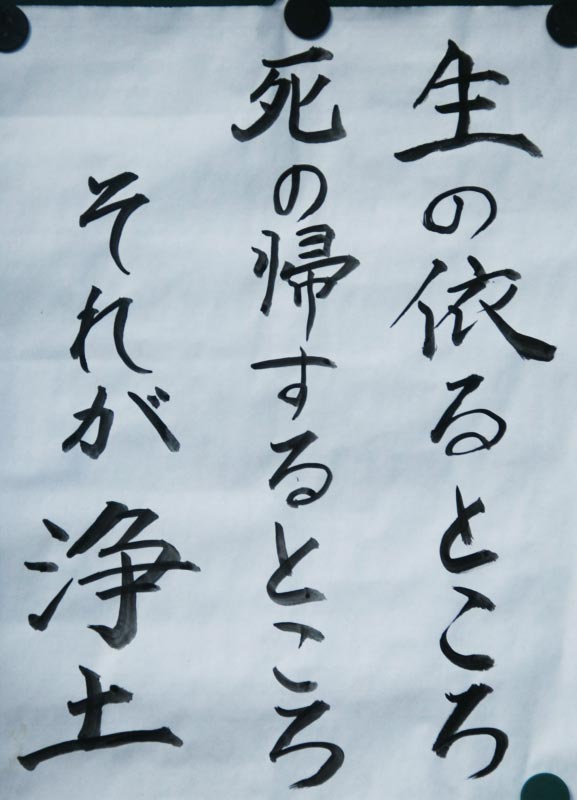 生の依るところ
死の帰するところ
それが浄土